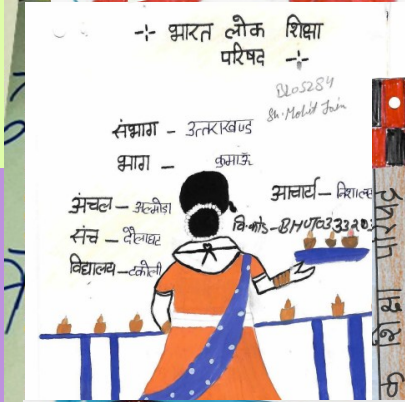 -:- भारत लोक शिक्षा
परिषद -:-
B205284
Sh. Mohit Jain
संभाग - उत्तराखण्ड
भाग - कुमाऊँ
अंचल - अल्मोड़ा
आचार्य -
संच - दौलाघट
वि.कोड -
विद्यालय - टकोली
क शिक्षा परिषद